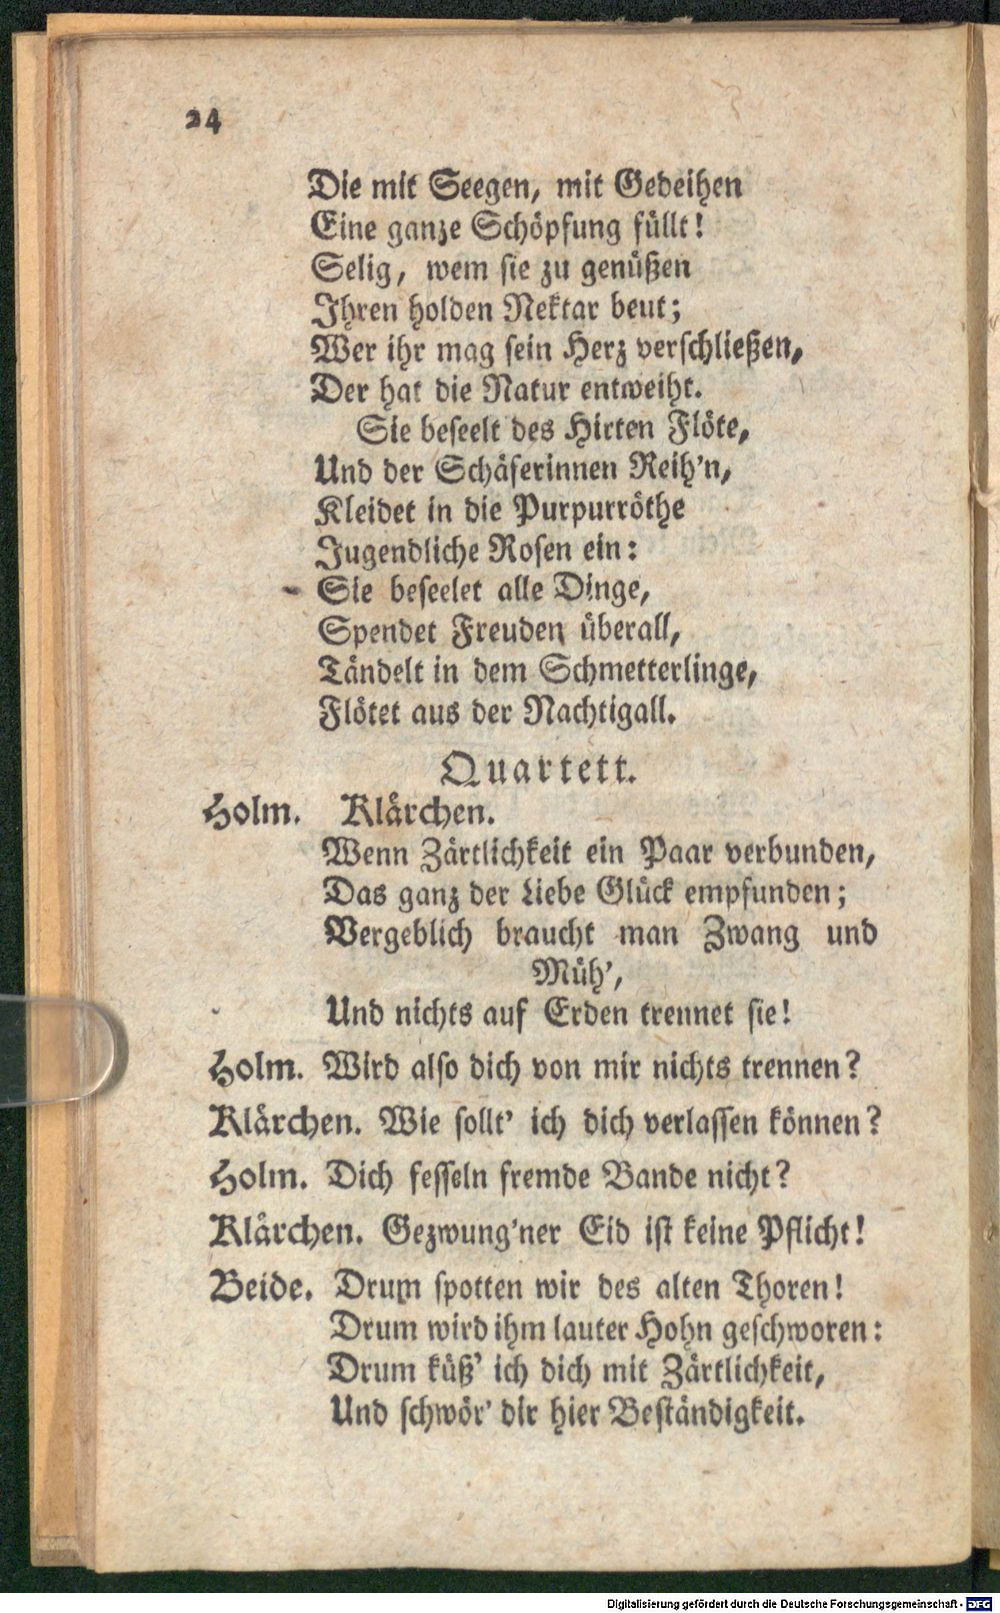 24
Die mit Seegen, mit Gedeihen
Eine ganze Schöpfung füllt!
Selig, wem sie zu genüßen
Ihren holden Nektar beut;
Wer ihr mag sein Herz verschließen,
Der hat die Natur entweiht.
Sie beseelt des Hirten Flöte,
Und der Schäferinnen Reih'n,
Kleidet in die Purpurröthe
Jugendliche Rosen ein:
Sie beseelet alle Dinge,
Spendet Freuden überall,
Tändelt in dem Schmetterlinge,
Flötet aus der Nachtigall.
Quartett.
Holm. Klärchen.
Wenn Zärtlichkeit ein Paar verbunden,
Das ganz der Liebe Glück empfunden;
Vergeblich braucht man Zwang und
Müh',
Und nichts auf Erden trennet sie!
Holm. Wird also dich von mir nichts trennen?
Klärchen. Wie sollt' ich dich verlassen können?
Holm. Dich fesseln fremde Bande nicht?
Klärchen. Gezwung'ner Eid ist keine Pflicht!
Beide. Drum spotten wir des alten Thoren!
Drum wird ihm lauter Hohn geschworen:
Drum küß' ich dich mit Zärtlichkeit,
Und schwör' dir hier Beständigkeit.
Digitalisierung gefördert durch die Deutsche Forschungsgemeinschaft - DFG